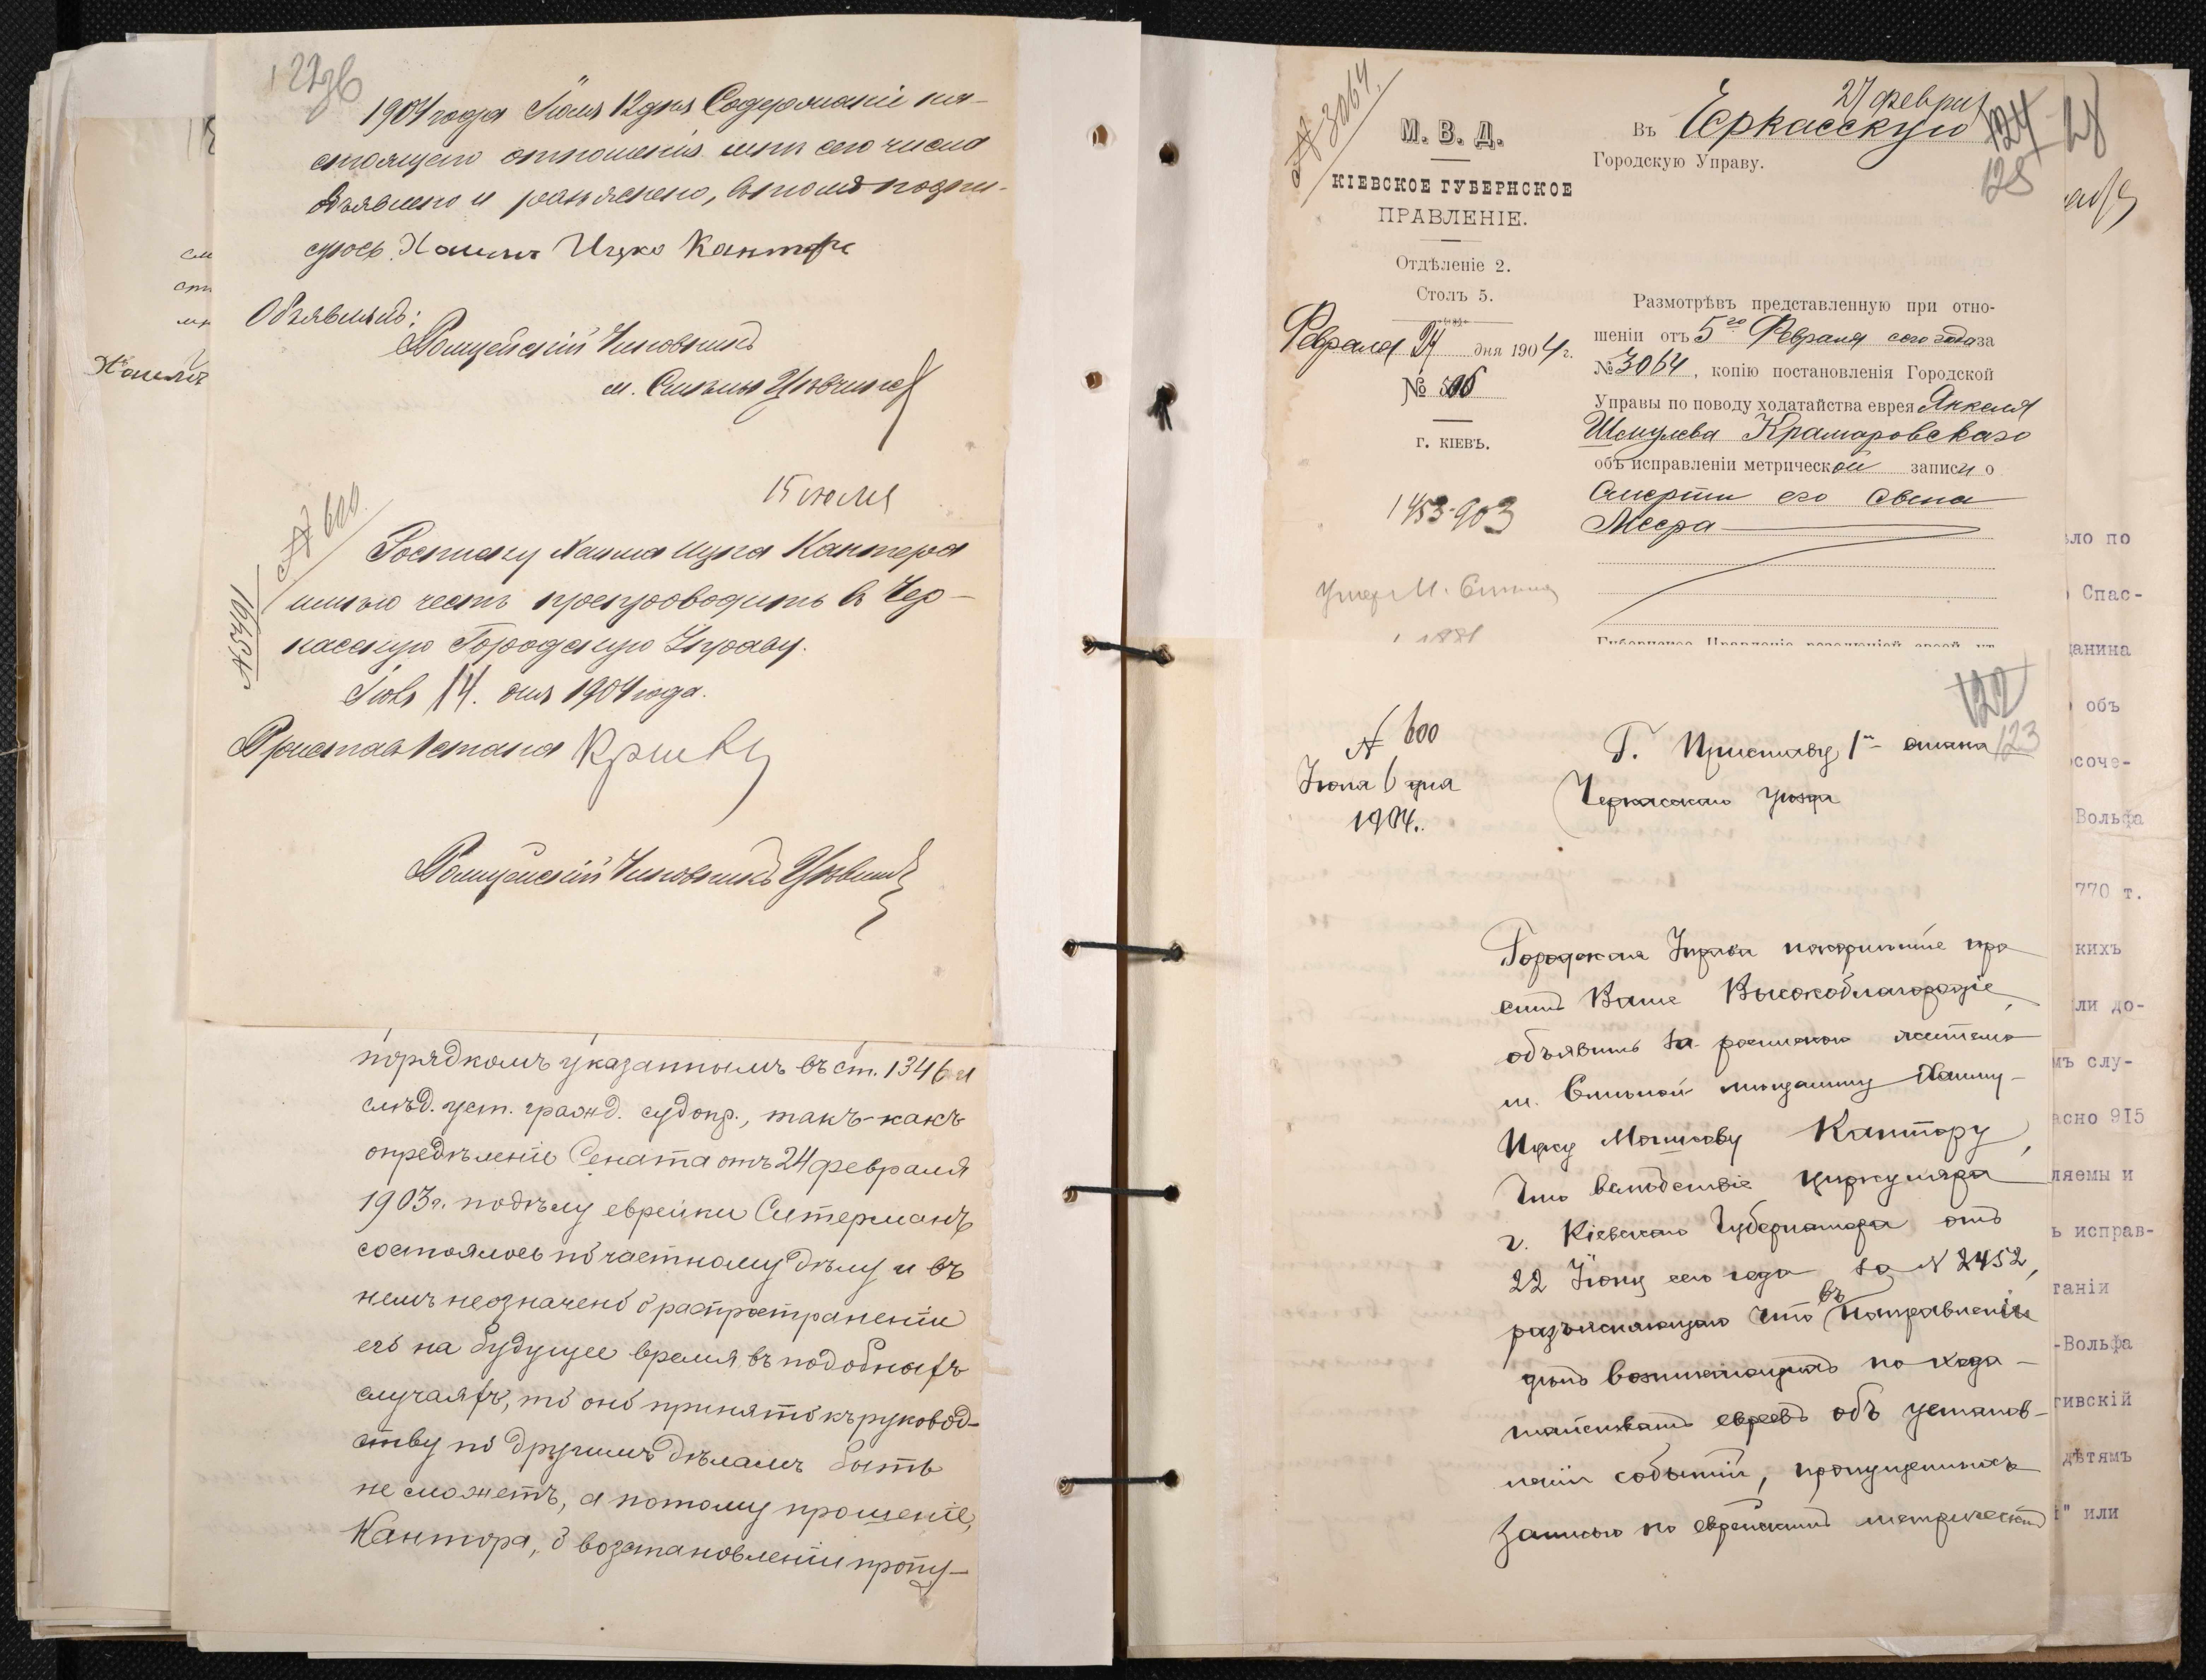 122об
1904 года Іюля 12 дня Содержаніе на-
стоящего отношенія мнѣ сего числа
объявлено и разъяснено, в томъ подпи-
суюсь Хаимъ Ицко Канторъ
Объявилъ:
Полицейскій Чиновникъ
м. Смѣлы
15 июля
№ 600.
№ 5491
Росписку Хаима Ицка Кантора
имѣю честь препроводить в Чер-
касскую Городскую Управу.
Іюль 14. дня 1904 года.
Приставъ 1 стана
Полицейскій Чиновникъ
порядкомъ указаннымъ въ ст. 1346 и
слѣд. уст. гражд. судопр., такъ-какъ
опредѣленіе Сената отъ 24 февраля
1903 г. по дѣлу еврейки Ситерманъ
состоялось по частному дѣлу и въ
немъ не означено о распространеніи
его на будущее время въ подобныхъ
случаяхъ, то оно принято къ руковод-
ству по другимъ дѣламъ быть
не сможетъ, а потому прошеніе,
Кантора, о возстановленіи пропу-
№ 3064.
М. В. Д.
КІЕВСКОЕ ГУБЕРНСКОЕ
ПРАВЛЕНІЕ.
Отдѣленіе 2.
Столъ 5.
Февраля 24 дня 1904 г.
№ 506
г. КІЕВЪ.
1453-903
Умер м.
1881
27 феврал
Въ Черкасскую
Городскую Управу.
124
125
Размотрѣвъ представленную при отно-
шеніи отъ 5го Февраля сего года за
№ 3064, копію постановленія Городской
Управы по поводу ходатайства еврея Янкеля
Шмулева Крамаровскаго
объ исправленіи метрической записи о
смерти его сына
Меера
Губернское Правленіе резолюціей своей ут
122
123
№ 600
Іюля 6 дня
1904.
Г. Приставу 1го стана
Черкасскаго уѣзда
Городская Управа покорнѣйше про
ситъ Ваше Высокоблагородіе,
объявить за роспискою жителю
м. Смѣлой мѣщанину Хаиму-
Ицку Мошкову Кантору,
что вслѣдствіе циркуляра
г. Кіевскаго Губернатора отъ
22 Іюня сего года за № 2452,
разъясняющаго что въ направленіи
дѣлъ возникающихъ по хода-
тайствамъ евреевъ объ установ-
леніи событій, пропущенныхъ
записью по еврейскимъ метрическимъ
ло по
Спас-
данина
объ
соче-
Вольфа
770 т.
кихъ
ли до-
мъ слу-
асно 915
ляемы и
ь исправ-
таніи
-Вольфа
гивскій
дѣтямъ
" или